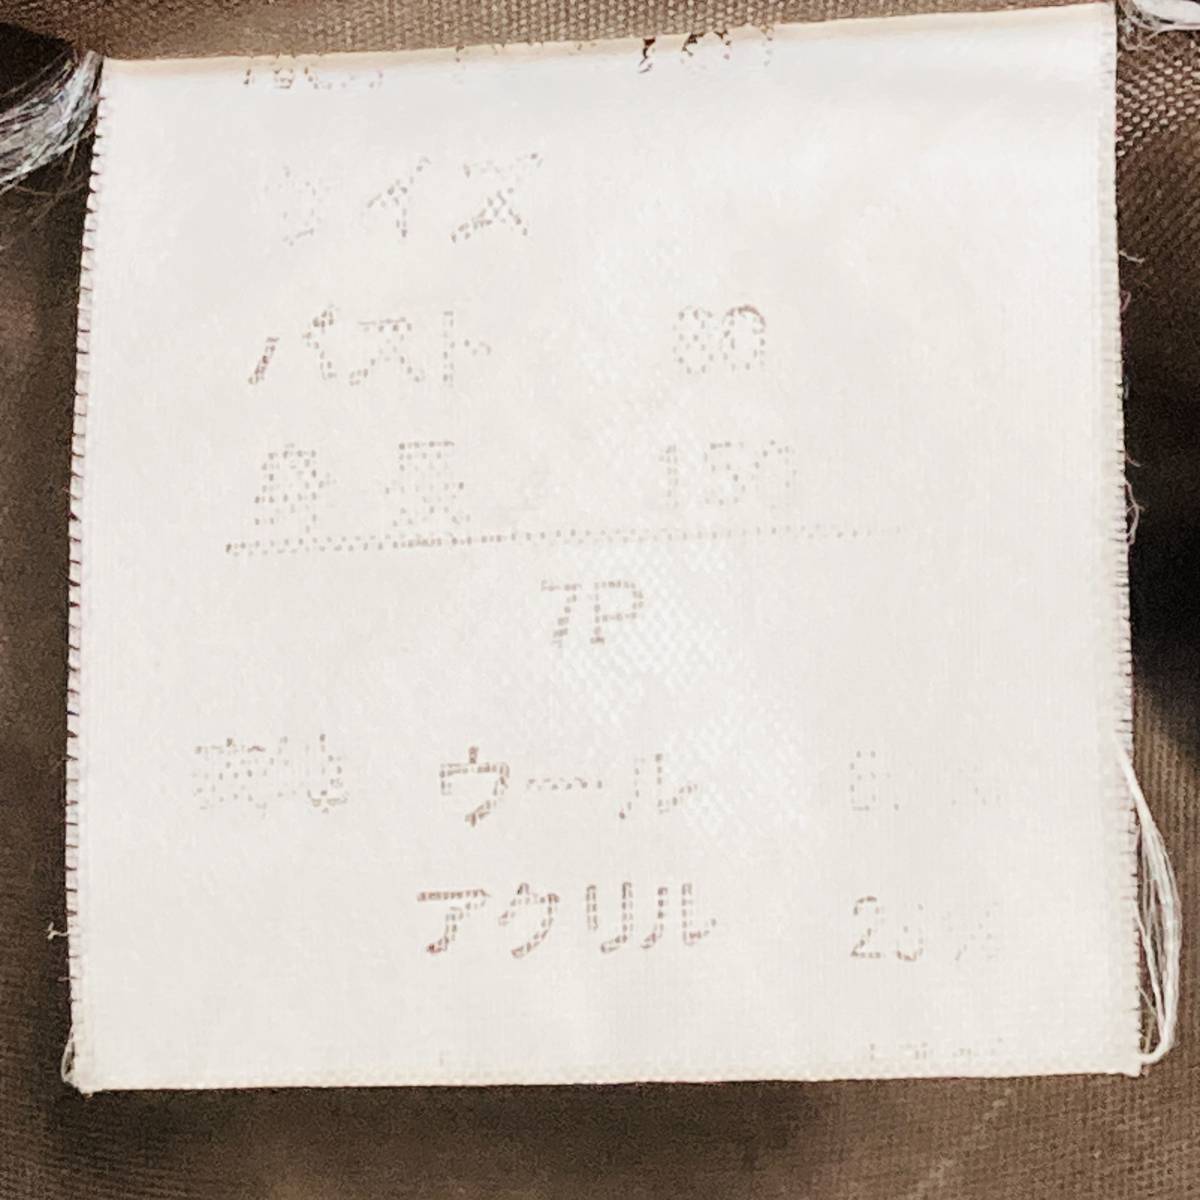 サイズ
バスト 80
身長 150
7P
表地 ウール
アクリル 20%